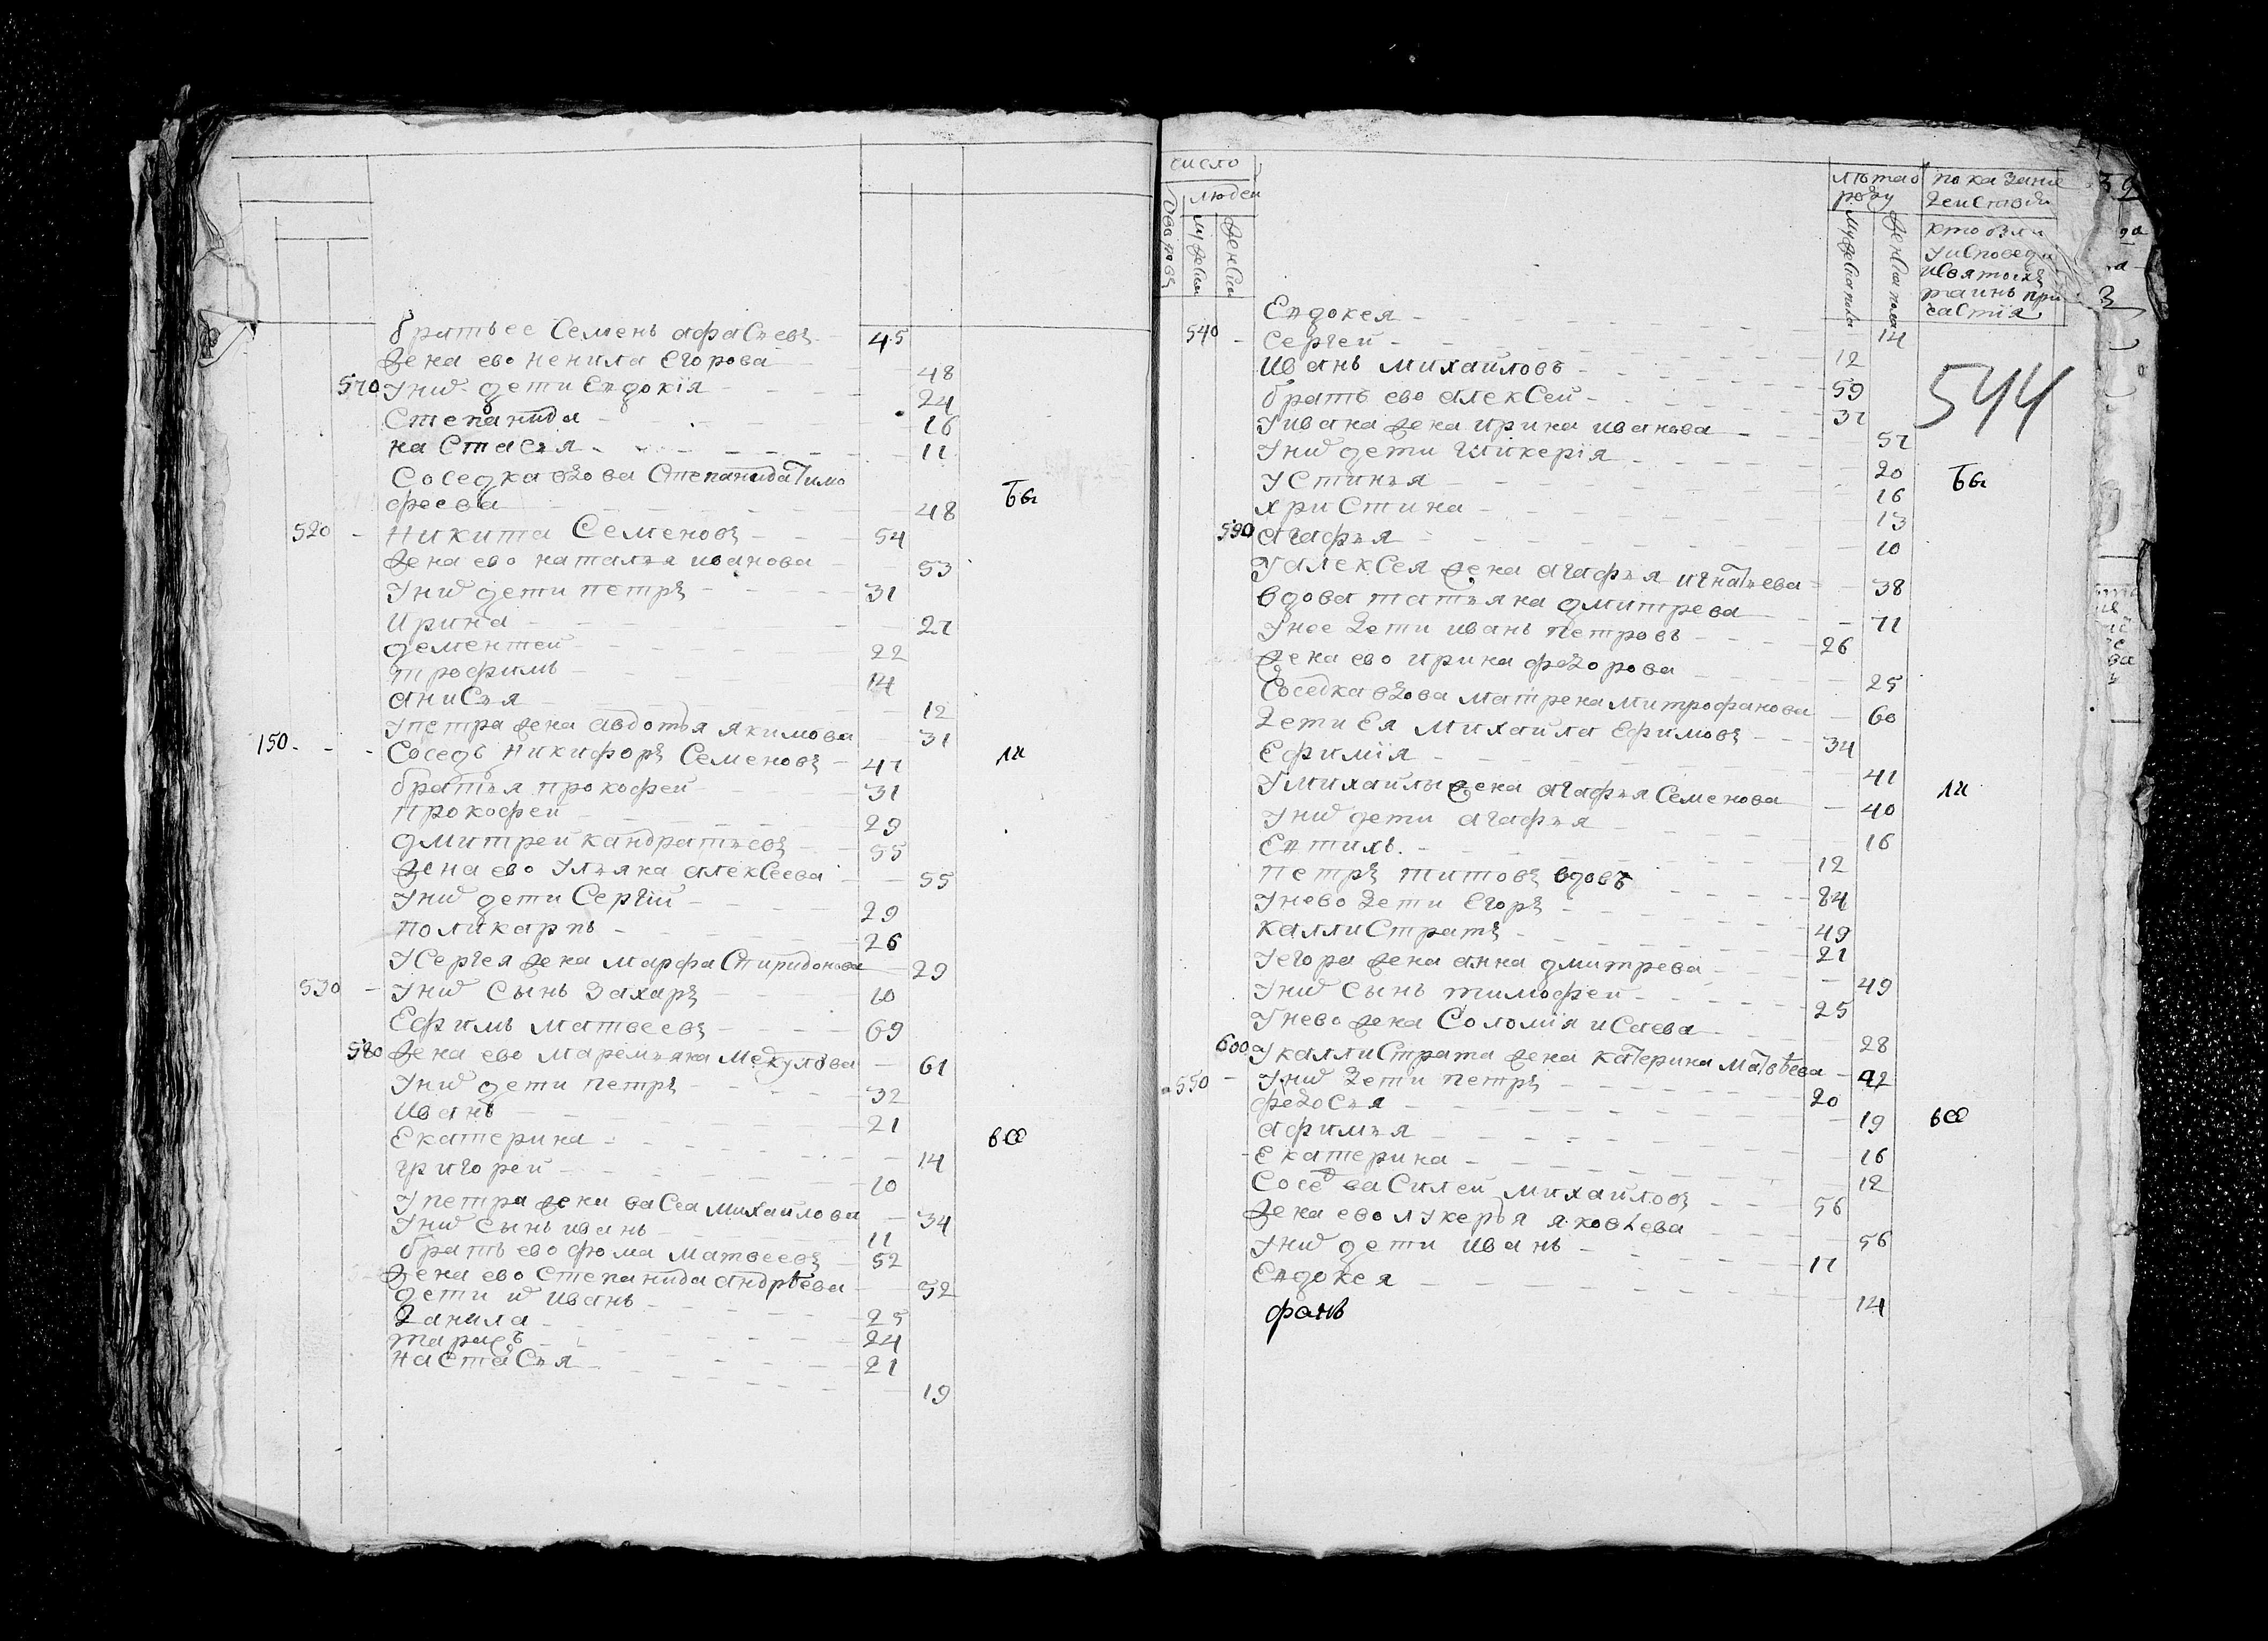 братъ ее Семенъ афасьевъ 45
жена ево ненила Егорова 48
570 У нихъ дети Евдокія 24
Степанида 16
настасья 11
Соседка вдова Степанида Тимо
феева 48 бы
520 Никита Семеновъ 54
жена ево наталья иванова 53
У нихъ дети петръ 31
Ирина 27
дементей 22
трофимъ 14
анисья 12
У петра жена авдотья якимова 31
150 Соседъ Никифоръ Семеновъ 47 ли
братья прокофей 31
Прокофей 29
дмитреи кандратьевъ 55
жена ево Ульяна алексеева 55
У нихъ дети Сергіи 29
поликарпъ 26
У Сергея жена марфа Спиридонова 29
530 У нихъ Сынъ Захаръ 10
Ефимъ матвеевъ 69
580 жена ево маремьяна 61
У нихъ дети петръ 32
Иванъ 21
Екатерина 14 все
григорей 10
У петра жена васса михаилова 34
У нихъ Сынъ иванъ 11
братъ ево фома матвеевъ 52
жена ево степанида андрѣева 52
дети ихъ иванъ 25
данила 24
тарасъ 21
настасья 19
число
людей
дворовъ
мужеска
женска
лѣта от
роду
мужеска пола
женска пола
показание
действи
кто были
у исповеди
и святыхъ
таинъ при
частія
Евдокея 14
540 Сергей 12
Иванъ михаиловъ 59
братъ ево алексей 37
544
У ивана жена ирина иванова 57
У нихъ дети гликерія 20
Устинья 16 бы
христина 13
590 агафья 10
У алексея жена агафья игнатьева 38
вдова татьяна дмитрева 71
У нее дети иванъ петровъ 26
жена ево ирина федорова 25
Соседка вдова матрена митрофанова 60
дети Ея михаила Ефимовъ 34
Ефимія 41
У михаилы жена агафья Семенова 40 ли
У нихъ дети агафья 16
Евтихъ 12
Петръ титовъ вдовъ 84
У нево дети Егоръ 49
каллистратъ 21
У егора жена анна дмитрева 49
У нихъ Сынъ тимофей 25
У нево жена Соломія исаева 28
600 У каллистрата жена катерина матвѣева 42
550 У нихъ дети петръ 20
федосья 19 все
афимья 16
Екатерина 12
Соседъ василей михайловъ 56
жена ево лукерья яковлева 56
У нихъ дети иванъ 17
Евдокея 14